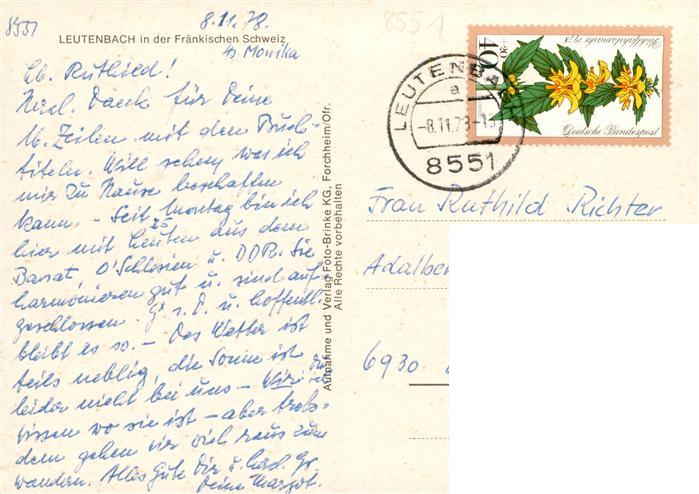 8551
8.11.78.
8551
LEUTENBACH in der Fränkischen Schweiz
b Monika
Lb. Ruthild!
Herzl. Dank für Deine
lb. Zeilen mit den Buch-
titeln. Will sehen, was ich
mir zu Hause beschaffen
kann. – Seit Montag bin ich
hier mit zu Leuten aus dem
Banat, O'Schlesien u. DDR. Sie
harmonieren gut u. sind auf-
geschlossen. G. s. D. u. hoffentl.
bleibt es so. – Das Wetter ist
teils neblig, die Sonne ist
leider nicht bei uns – Wir
wissen wo sie ist – aber trotz-
dem gehen wir viel raus zum
wandern. Alles Gute Dir u. herzl. Gr.
Deine Margot.
Aufnahme und Verlag Foto-Brinke KG. Forchheim/Ofr.
Alle Rechte vorbehalten
LEUTENBACH
a
-8.11.78-15
8551
40
Wohlfahrtsmarke 1978
Deutsche Bundespost
Frau Ruthild Richter
Adalber
6930